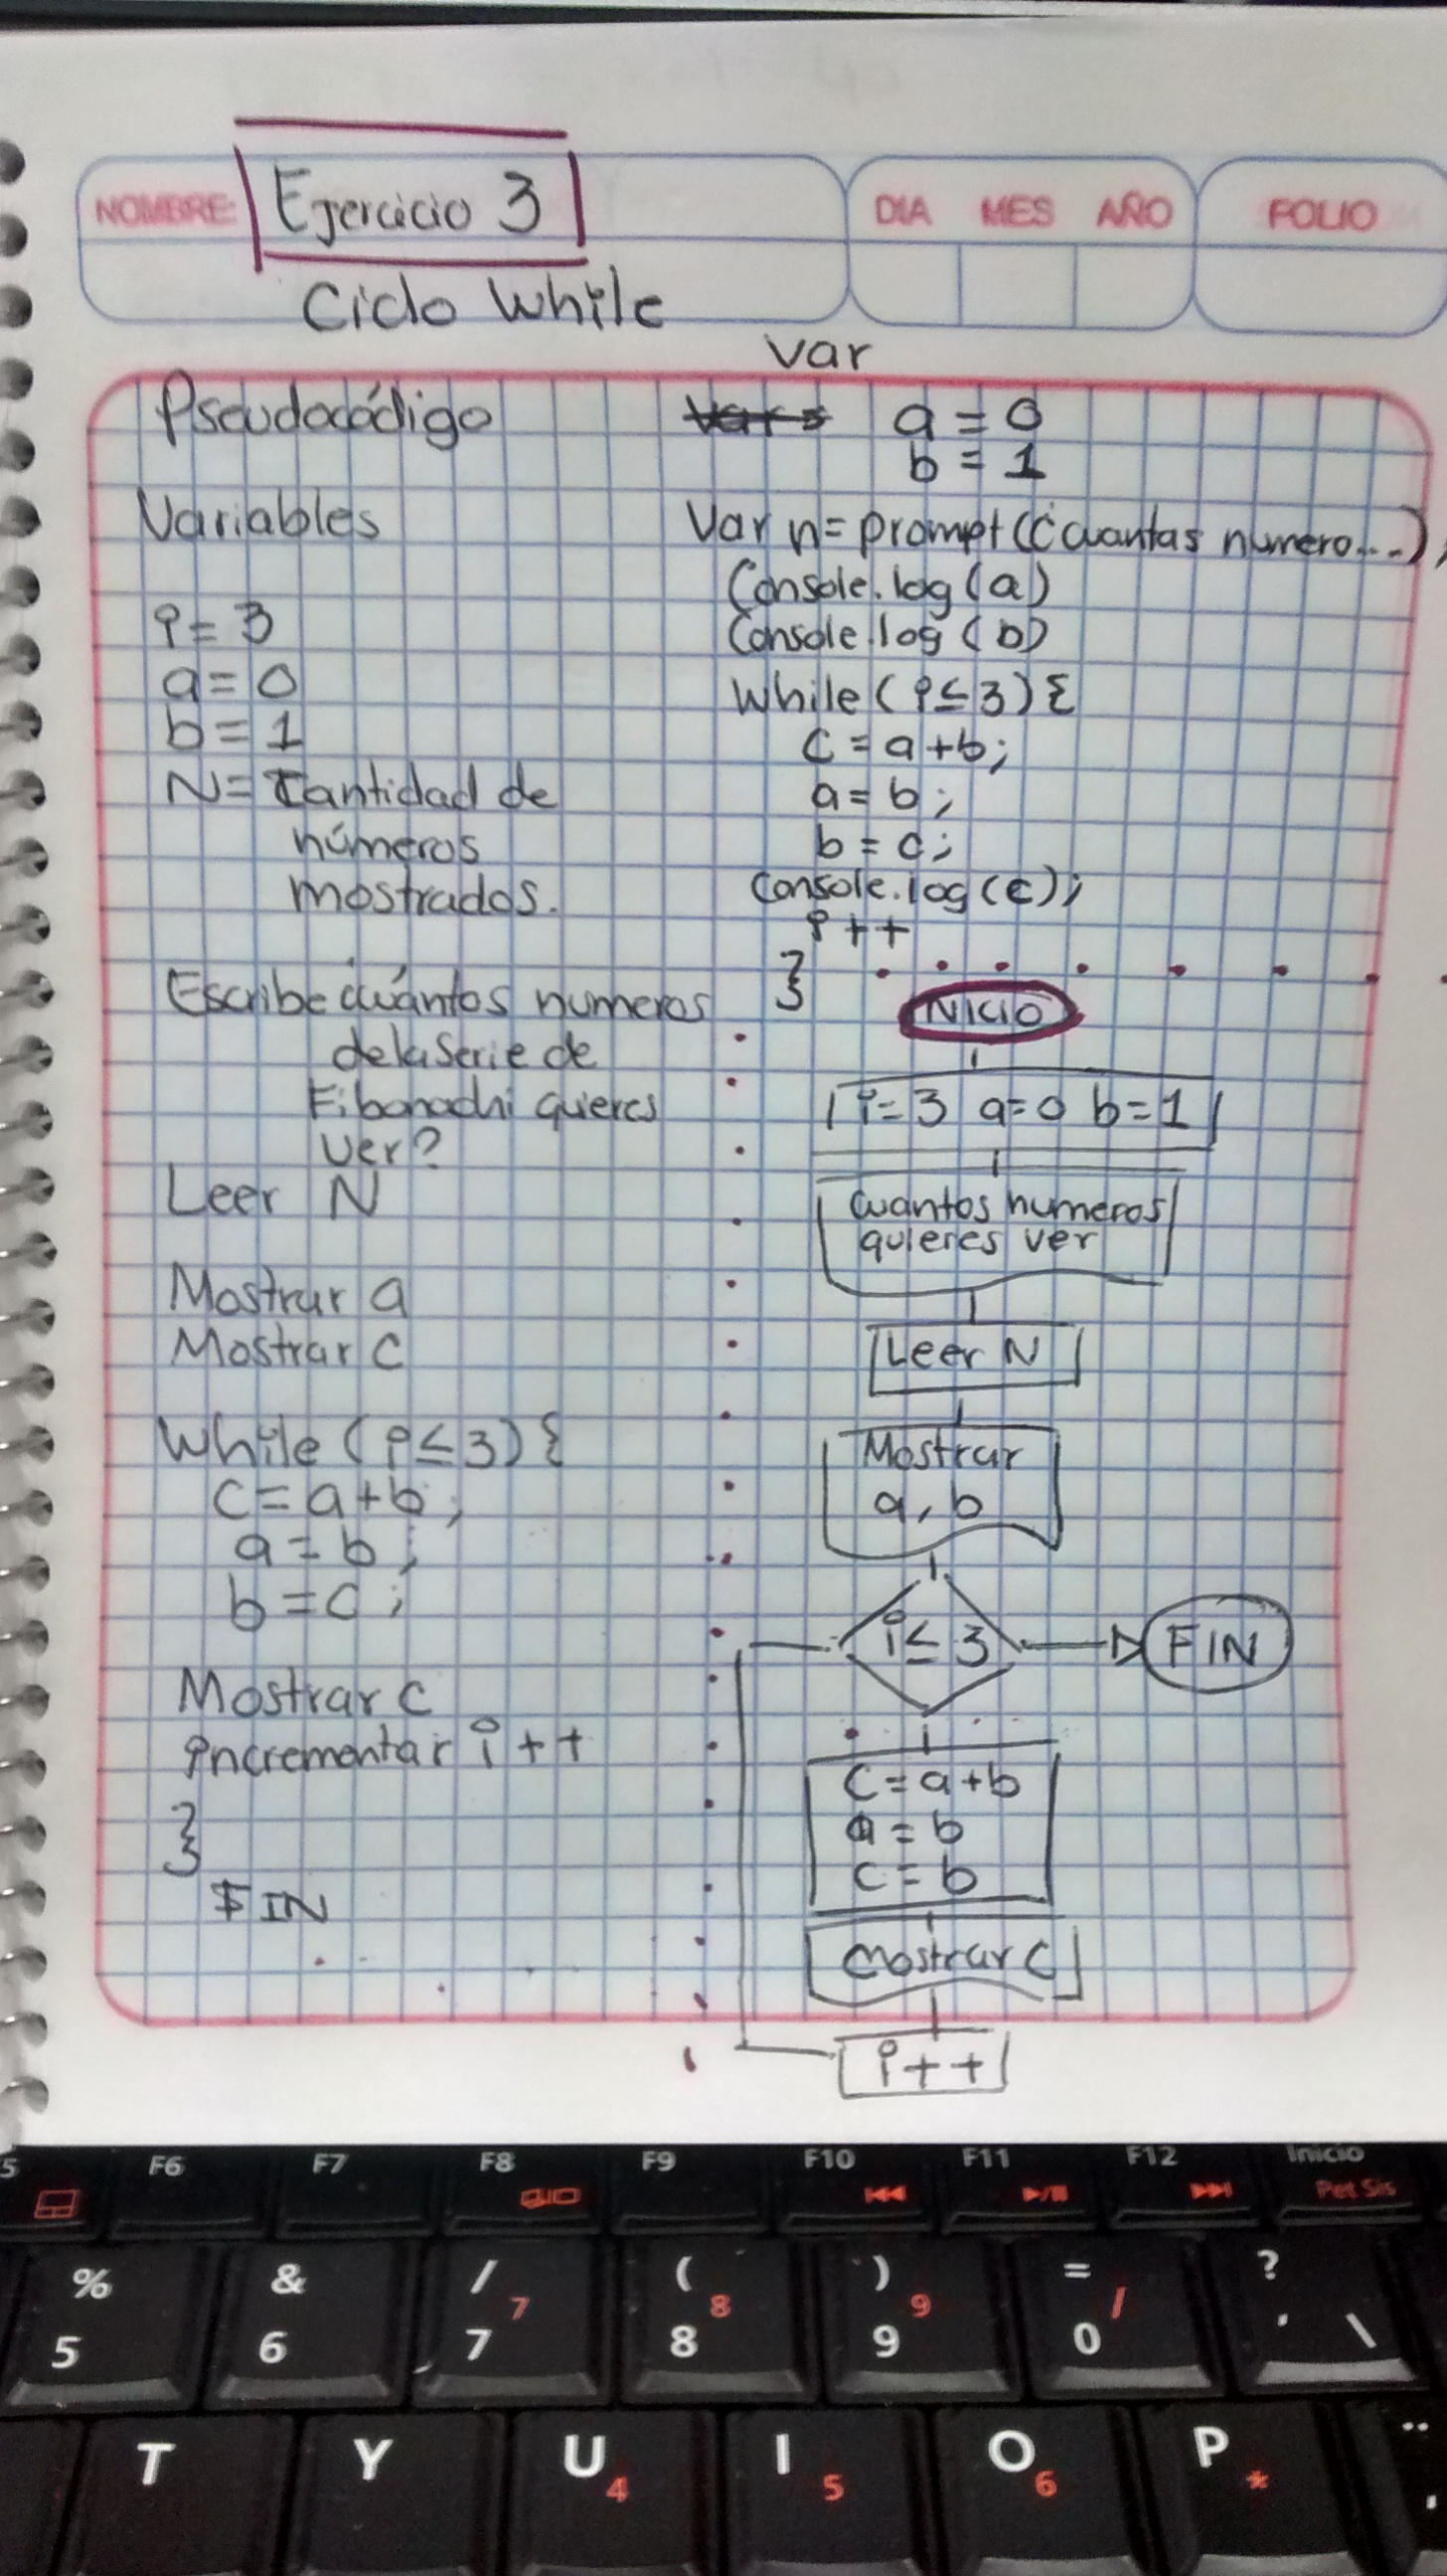 NOMBRE: Ejercicio 3
DIA MES AÑO
FOLIO
Ciclo While
Pseudocódigo
Variables
i = 3
a = 0
b = 1
N = Cantidad de
números
mostrados.
Escribe cuántos numeros
de la serie de
Fibonachi quieres
ver?
Leer N
Mostrar a
Mostrar C
While ( i ≤ 3 ) {
C = a + b ;
a = b ;
b = c ;
Mostrar C
incrementar i ++
}
FIN
var
a = 0
b = 1
Var n= prompt (¿cuantas numero...);
Console.log (a)
Console.log (b)
While ( i ≤ 3 ) {
C = a + b;
a = b ;
b = c ;
Console.log (c);
i ++
}
INICIO
i = 3 a = 0 b = 1
Cuantos numeros
quieres ver
Leer N
Mostrar
a, b
i ≤ 3
FIN
C = a + b
a = b
C = b
Mostrar C
i ++
5 F6 F7 F8 F9 F10 F11 F12 Inicio
Pet Sis
% & / ( ) = ?
7 8 9 /
5 6 7 8 9 0 ' \
T Y U I O P ¨
4 5 6 *